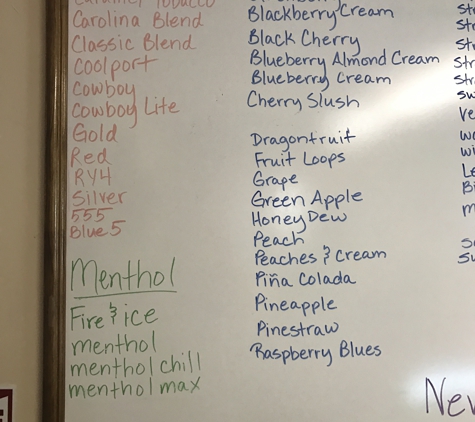 Caramel Tobacco
Carolina Blend
Classic Blend
Coolport
Cowboy
Cowboy Lite
Gold
Red
RY4
Silver
555
Blue 5
Menthol
Fire & ice
menthol
menthol chill
menthol max
Blackberry Cream
Black Cherry
Blueberry Almond Cream
Blueberry Cream
Cherry Slush
Dragonfruit
Fruit Loops
Grape
Green Apple
Honey Dew
Peach
Peaches & Cream
Piña Colada
Pineapple
Pinestraw
Raspberry Blues
Str
Str
Str
Ve
Le
New